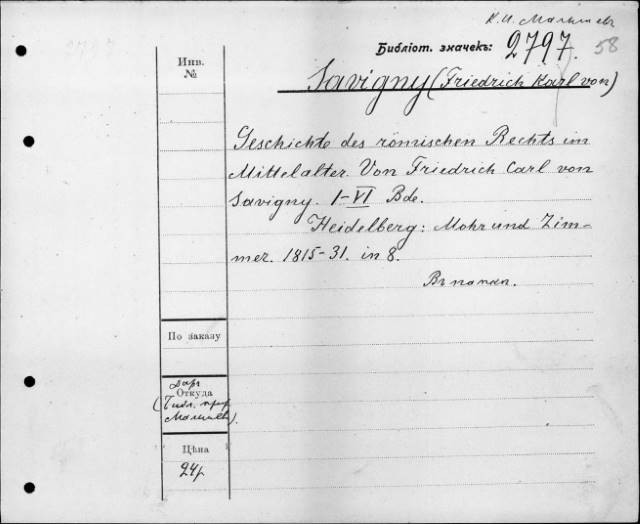 К. И. Малышев
Библіот. значекъ: 2797. 58
Инв.
№
Savigny (Friedrich Karl von)
Geschichte des römischen Rechts im
Mittelalter. Von Friedrich Carl von
Savigny. I-VI Bde.
Heidelberg: Mohr und Zim-
mer. 1815-31. in 8.
Въ папкѣ.
По заказу
Даръ
Откуда
(Библ. проф.
Малышева).
Цѣна
24р